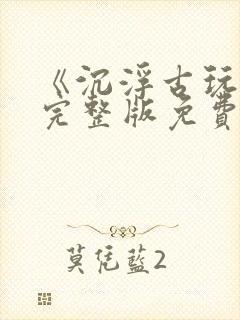 《沉浮古玩
完整版免費
莫凭藍2